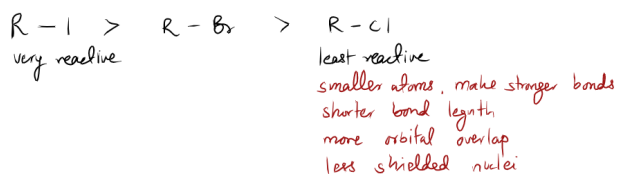 R - I > R - Br > R - Cl
very reactive least reactive
smaller atoms, make stronger bonds
shorter bond legnth
more orbital overlap
less shielded nuclei